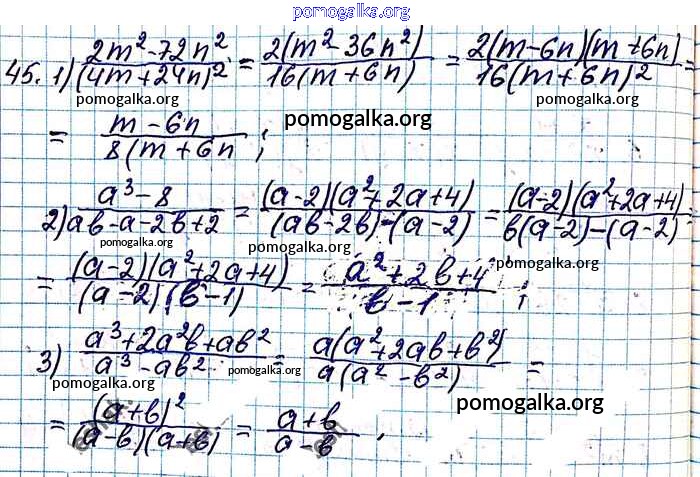 pomogalka.org
45. 1) (2m² - 72n²)/(4m + 24n)² = 2(m² - 36n²)/16(m + 6n) = 2(m - 6n)(m + 6n)/16(m + 6n)² =
pomogalka.org pomogalka.org
= (m - 6n)/8(m + 6n ; pomogalka.org
2) (a³ - 8)/(ab - a - 2b + 2) = (a - 2)(a² + 2a + 4)/(ab - 2b) - (a - 2) = (a - 2)(a² + 2a + 4)/b(a - 2) - (a - 2) =
pomogalka.org pomogalka.org pomogalka.org
= (a - 2)(a² + 2a + 4)/(a - 2)(b - 1) = (a² + 2b + 4)/(b - 1) ;
3) (a³ + 2a²b + ab²)/(a³ - ab²) = a(a² + 2ab + b²)/a(a² - b²) =
pomogalka.org pomogalka.org
= (a + b)²/(a - b)(a + b) = (a + b)/(a - b) , pomogalka.org